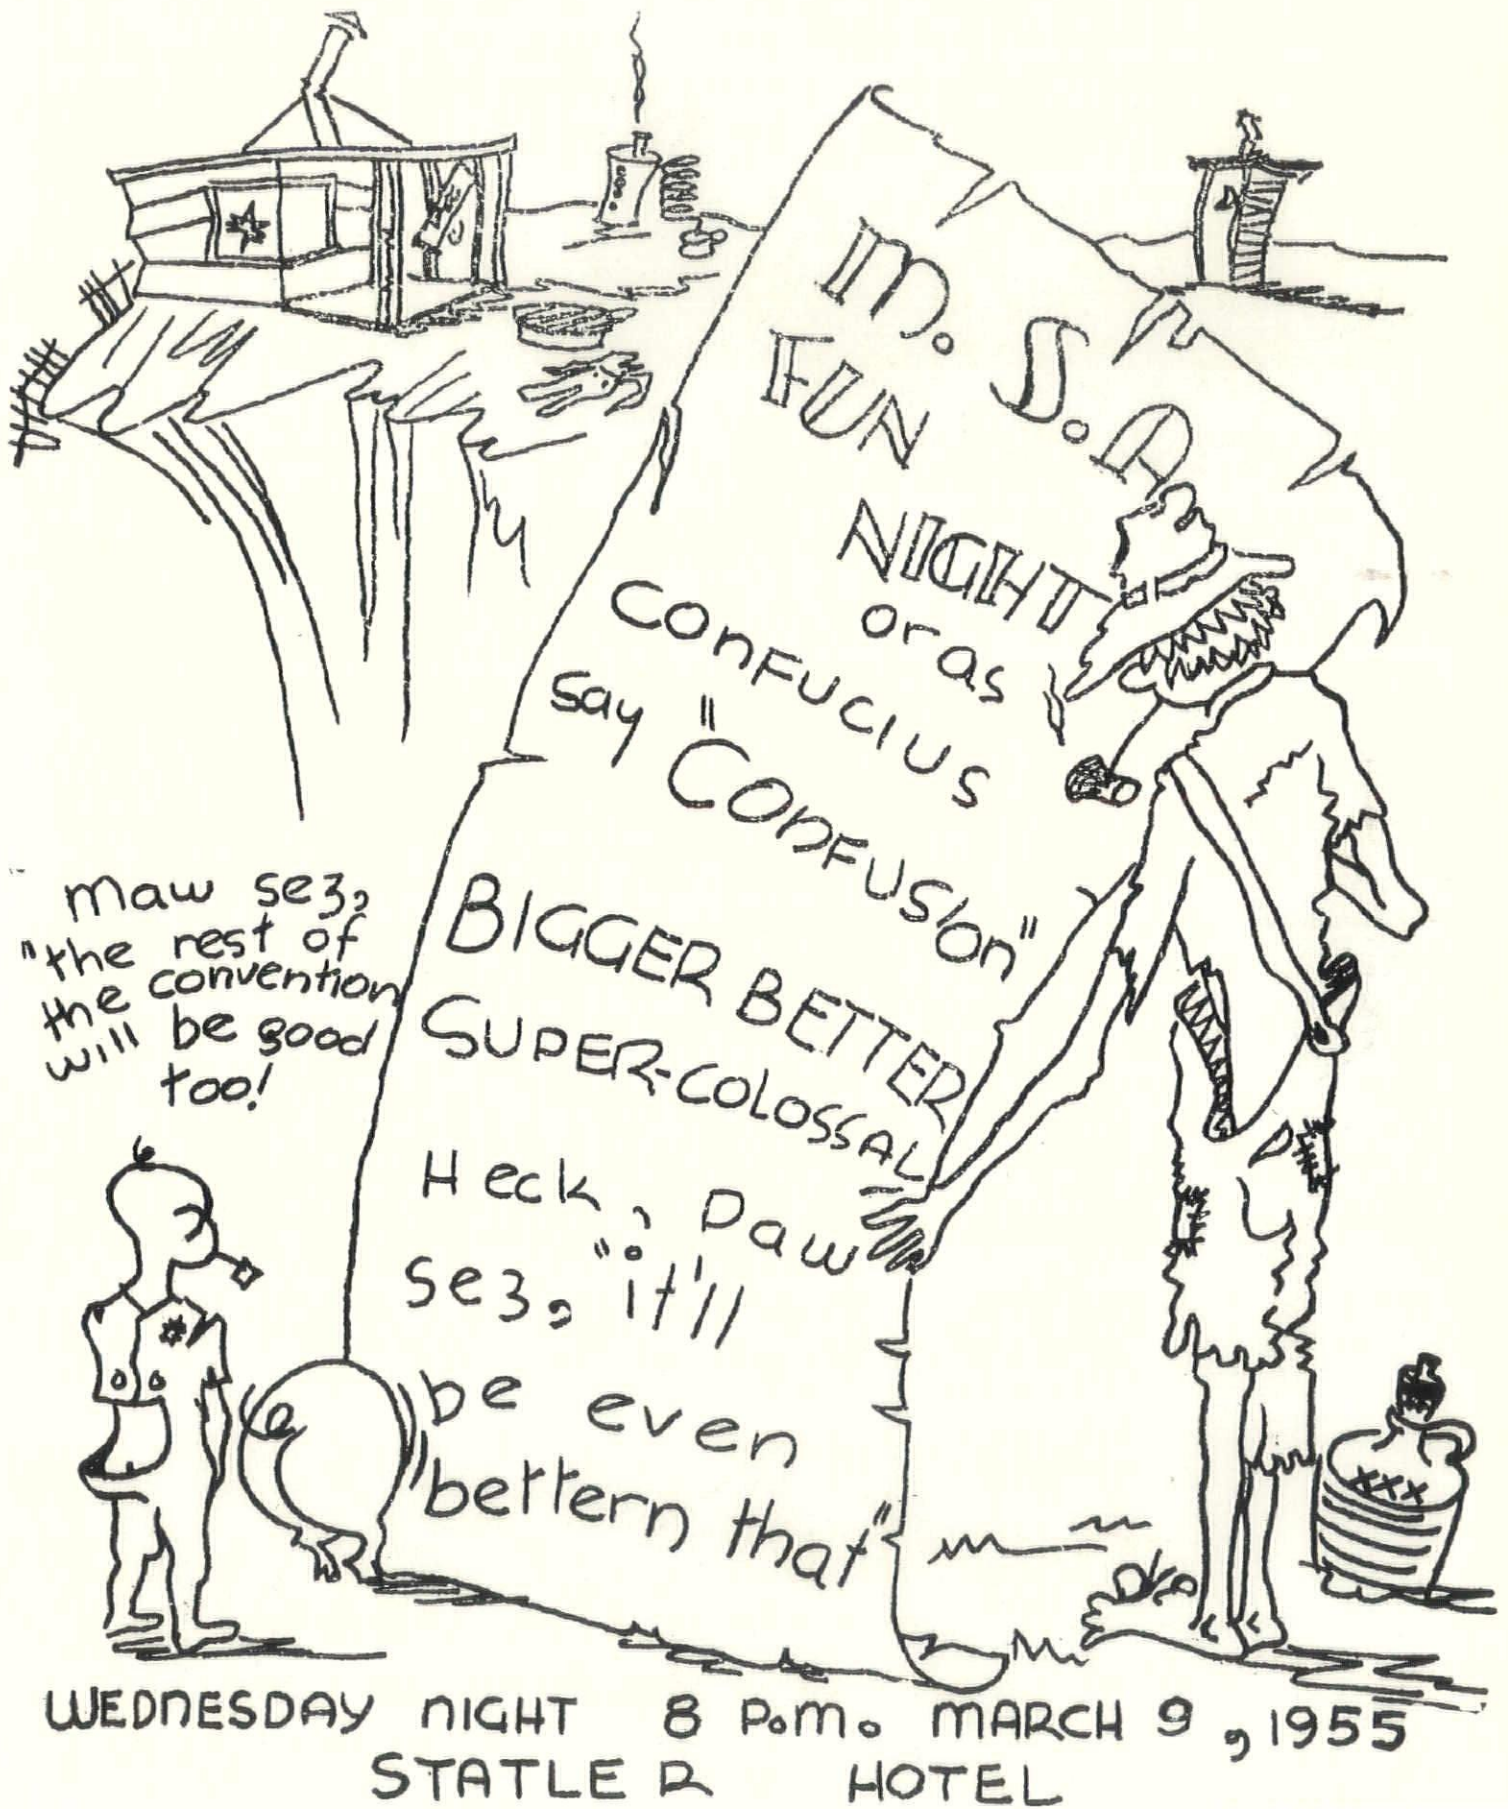 M. S. A.
FUN
NIGHT
or as
CONFUCIUS
say "CONFUSION"
BIGGER BETTER
SUPER-COLOSSAL
Heck, Paw
sez, "it'll
be even
bettern that"
maw sez,
"the rest of
the convention
will be good
too!
XXX
WEDNESDAY NIGHT 8 P.M. MARCH 9, 1955
STATLER HOTEL